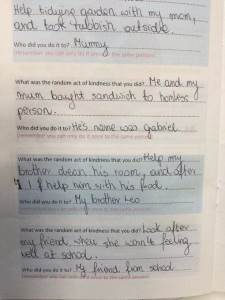 Help tidying garden with my mom,
and took rubbish outside.
Who did you do it to? Mummy
Remember you can only do it once to the same person!
What was the random act of kindness that you did? Me and my
mum bought sandwich to homless
person.
Who did you do it to? He's name was gabriel
Remember you can only do it once to the same person!
What was the random act of kindness that you did? Help my
brother clean his room, and after
I help him with his food.
Who did you do it to? My brother Leo
What was the random act of kindness that you did? Look after
my friend when she wan't feeling
well at school.
Who did you do it to? My friend from school